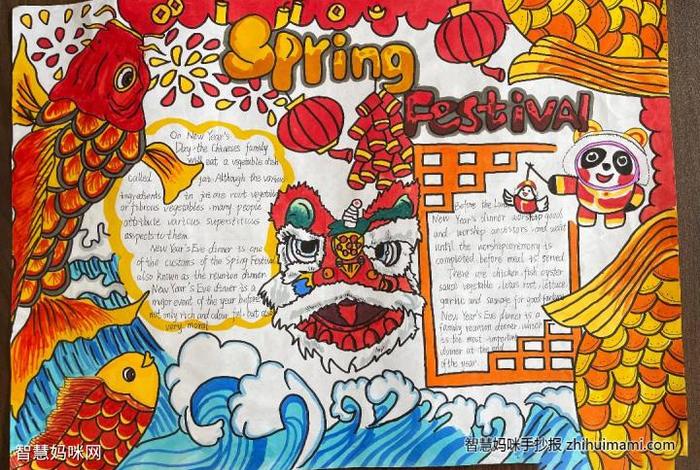 Spring
Festival
On New Year's
Day the Chineses family
will eat a vegetable dish
called jai. Although the various
ingredients in jai are root vegetables
or fibrous vegetables many people
attribute various superstitious
aspects to them.
New Year's Eve dinner is one
of the customs of the Spring Festival
also known as the reunion dinner
New Year's Eve dinner is a
major event of the year before
not only rich and colour ful, but also
very moral
Before the
New Year's dinner worship good
and worship ancestors and wait
until the worship ceremony is
completed before meal is served
There are chicken fish oyster
vegetable lotus root lettuce
and sausage for good fortune
New Year's Eve dinner is a
family reunion dinner which
is the most important
dinner at the end
of the year
智慧妈咪网
智慧妈咪手抄报 zhihuimami.com